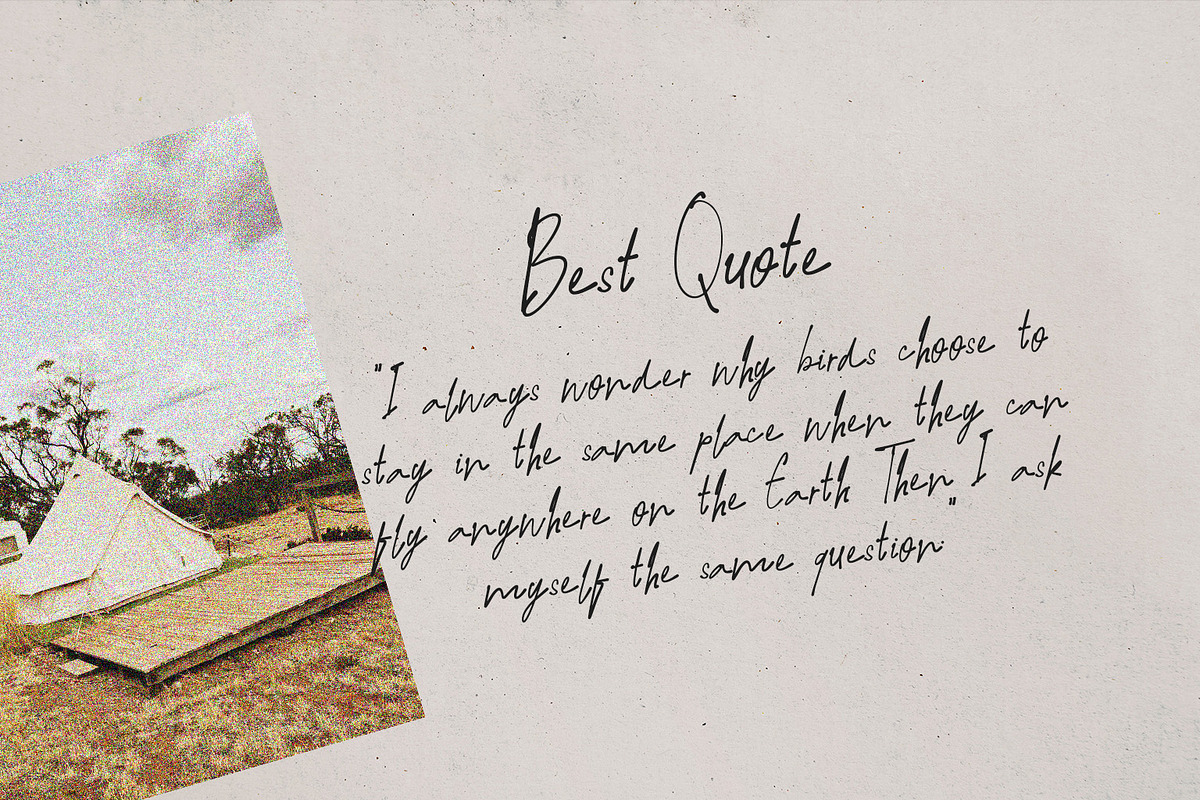 Best Quote
"I always wonder why birds choose to
stay in the same place when they can
fly anywhere on the Earth Then I ask
myself the same question."